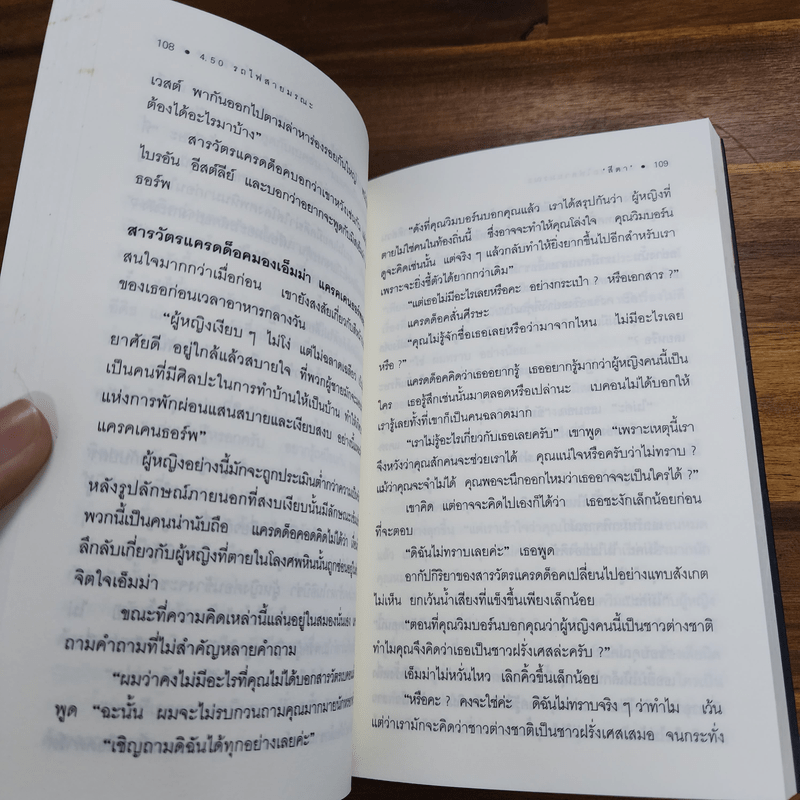 108 • 4.50 รถไฟสายมรณะ
เวสต์ พากันออกไปตามล่าหาร่องรอยกันใหญ่
ต้องได้อะไรมาบ้าง”
สารวัตรแครดด็อคบอกว่าเขาหวังเช่นกัน
ไบรอัน อีสต์ลีย์ และบอกว่าอยากจะพูดกับ
ธอร์พ
สารวัตรแครดด็อคมองเอ็มม่า แครคเคนธอร์พ
สนใจมากกว่าเมื่อก่อน เขายังสงสัยเกี่ยวกับ
ของเธอก่อนเวลาอาหารกลางวัน
“ผู้หญิงเงียบ ๆ ไม่โง่ แต่ไม่ฉลาดเฉลียว
ยาศัยดี อยู่ใกล้แล้วสบายใจ ที่พวกผู้ชายมักจะ
เป็นคนที่มีศิลปะในการทำบ้านให้เป็นบ้าน ทำให้
แห่งการพักผ่อนแสนสบายและเงียบสงบ อย่าง
แครคเคนธอร์พ”
ผู้หญิงอย่างนี้มักจะถูกประเมินต่ำกว่าความเป็น
หลังรูปลักษณ์ภายนอกที่สงบเงียบนั้นมีลักษณะ
พวกนี้เป็นคนน่านับถือ แครดด็อคอดคิดไม่ได้ว่า
ลึกลับเกี่ยวกับผู้หญิงที่ตายในโลงศพหินนั้นถูกซ่อนอยู่
จิตใจเอ็มม่า
ขณะที่ความคิดเหล่านี้แล่นอยู่ในสมองนั้นเอง
ถามคำถามที่ไม่สำคัญหลายคำถาม
“ผมว่าคงไม่มีอะไรที่คุณไม่ได้บอกสารวัตรเบคอน
พูด “ฉะนั้น ผมจะไม่รบกวนถามคุณมากมายนัก
“เชิญถามดิฉันได้ทุกอย่างเลยค่ะ”
'สีดา' 109
“ดังที่คุณวิมบอร์นบอกคุณแล้ว เราได้สรุปกันว่า ผู้หญิงที่
ตายไม่ใช่คนในท้องถิ่นนี้ ซึ่งอาจจะทำให้คุณโล่งใจ คุณวิมบอร์น
ดูจะคิดเช่นนั้น แต่จริง ๆ แล้วกลับทำให้ยิ่งยากขึ้นไปอีกสำหรับเรา
เพราะจะยิ่งชี้ตัวได้ยากกว่าเดิม”
“แต่เธอไม่มีอะไรเลยหรือคะ อย่างกระเป๋า ? หรือเอกสาร ?”
แครดด็อคสั่นศีรษะ
“คุณไม่รู้จักชื่อเธอเลยหรือว่ามาจากไหน ไม่มีอะไรเลย
หรือ ?”
แครดด็อคคิดว่าเธออยากรู้ เธออยากรู้มากว่าผู้หญิงคนนี้เป็น
ใคร เธอรู้สึกเช่นนั้นมาตลอดหรือเปล่านะ เบคอนไม่ได้บอกให้
เรารู้เลยทั้งที่เขาก็เป็นคนฉลาดมาก
“เราไม่รู้อะไรเกี่ยวกับเธอเลยครับ” เขาพูด “เพราะเหตุนี้เรา
จึงหวังว่าคุณสักคนจะช่วยเราได้ คุณแน่ใจหรือครับว่าไม่ทราบ ?
แม้ว่าคุณจะจำไม่ได้ คุณพอจะนึกออกไหมว่าเธออาจจะเป็นใครได้ ?”
เขาคิด แต่อาจจะคิดไปเองก็ได้ว่า เธอชะงักเล็กน้อยก่อน
ที่จะตอบ
“ดิฉันไม่ทราบเลยค่ะ” เธอพูด
อากัปกิริยาของสารวัตรแครดด็อคเปลี่ยนไปอย่างแทบสังเกต
ไม่เห็น ยกเว้นน้ำเสียงที่แข็งขึ้นเพียงเล็กน้อย
“ตอนที่คุณวิมบอร์นบอกคุณว่าผู้หญิงคนนี้เป็นชาวต่างชาติ
ทำไมคุณจึงคิดว่าเธอเป็นชาวฝรั่งเศสล่ะครับ ?”
เอ็มม่าไม่หวั่นไหว เลิกคิ้วขึ้นเล็กน้อย
“หรือคะ ? คงจะใช่ค่ะ ดิฉันไม่ทราบจริง ๆ ว่าทำไม เว้น
แต่ว่าเรามักจะคิดว่าชาวต่างชาติเป็นชาวฝรั่งเศสเสมอ จนกระทั่ง